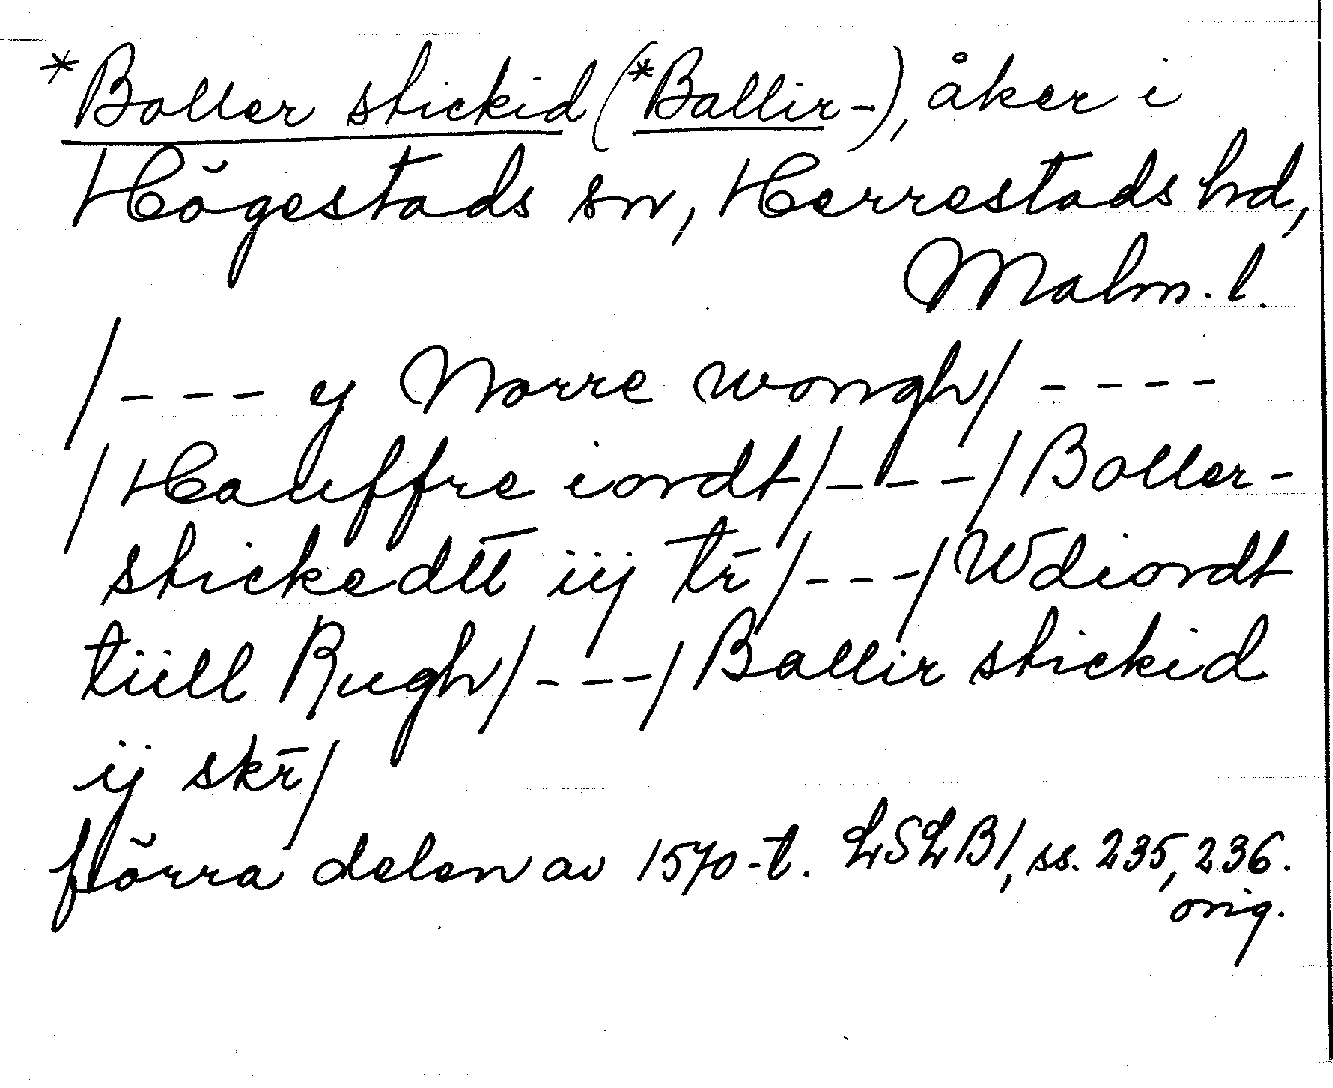 *Boller stickid (*Ballir-), åker i
Högestads sn, Herrestads hd,
Malm. l.
/--- y Norre wongh/ ----
/Hauffre iordt/---/Boller-
stickedtt iij tr̄/---/Wdiordt
tiill Rugh/---/Ballir stickid
ij skr̄/
förra delen av 1570-t. LSLB1, ss. 235, 236.
orig.